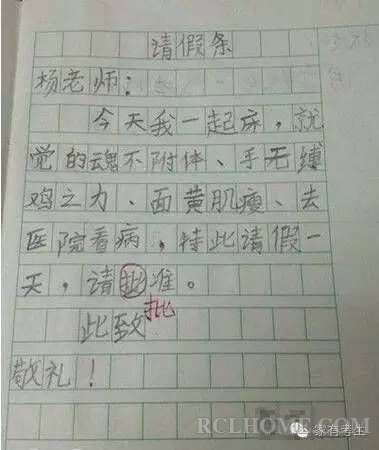 请假条
杨老师：
今天我一起床，就
觉的魂不附体、手无缚
鸡之力、面黄肌瘦、去
医院看病，特此请假一
天，请批准。
批
此致
敬礼！
RCLHOME.COM
家有考生